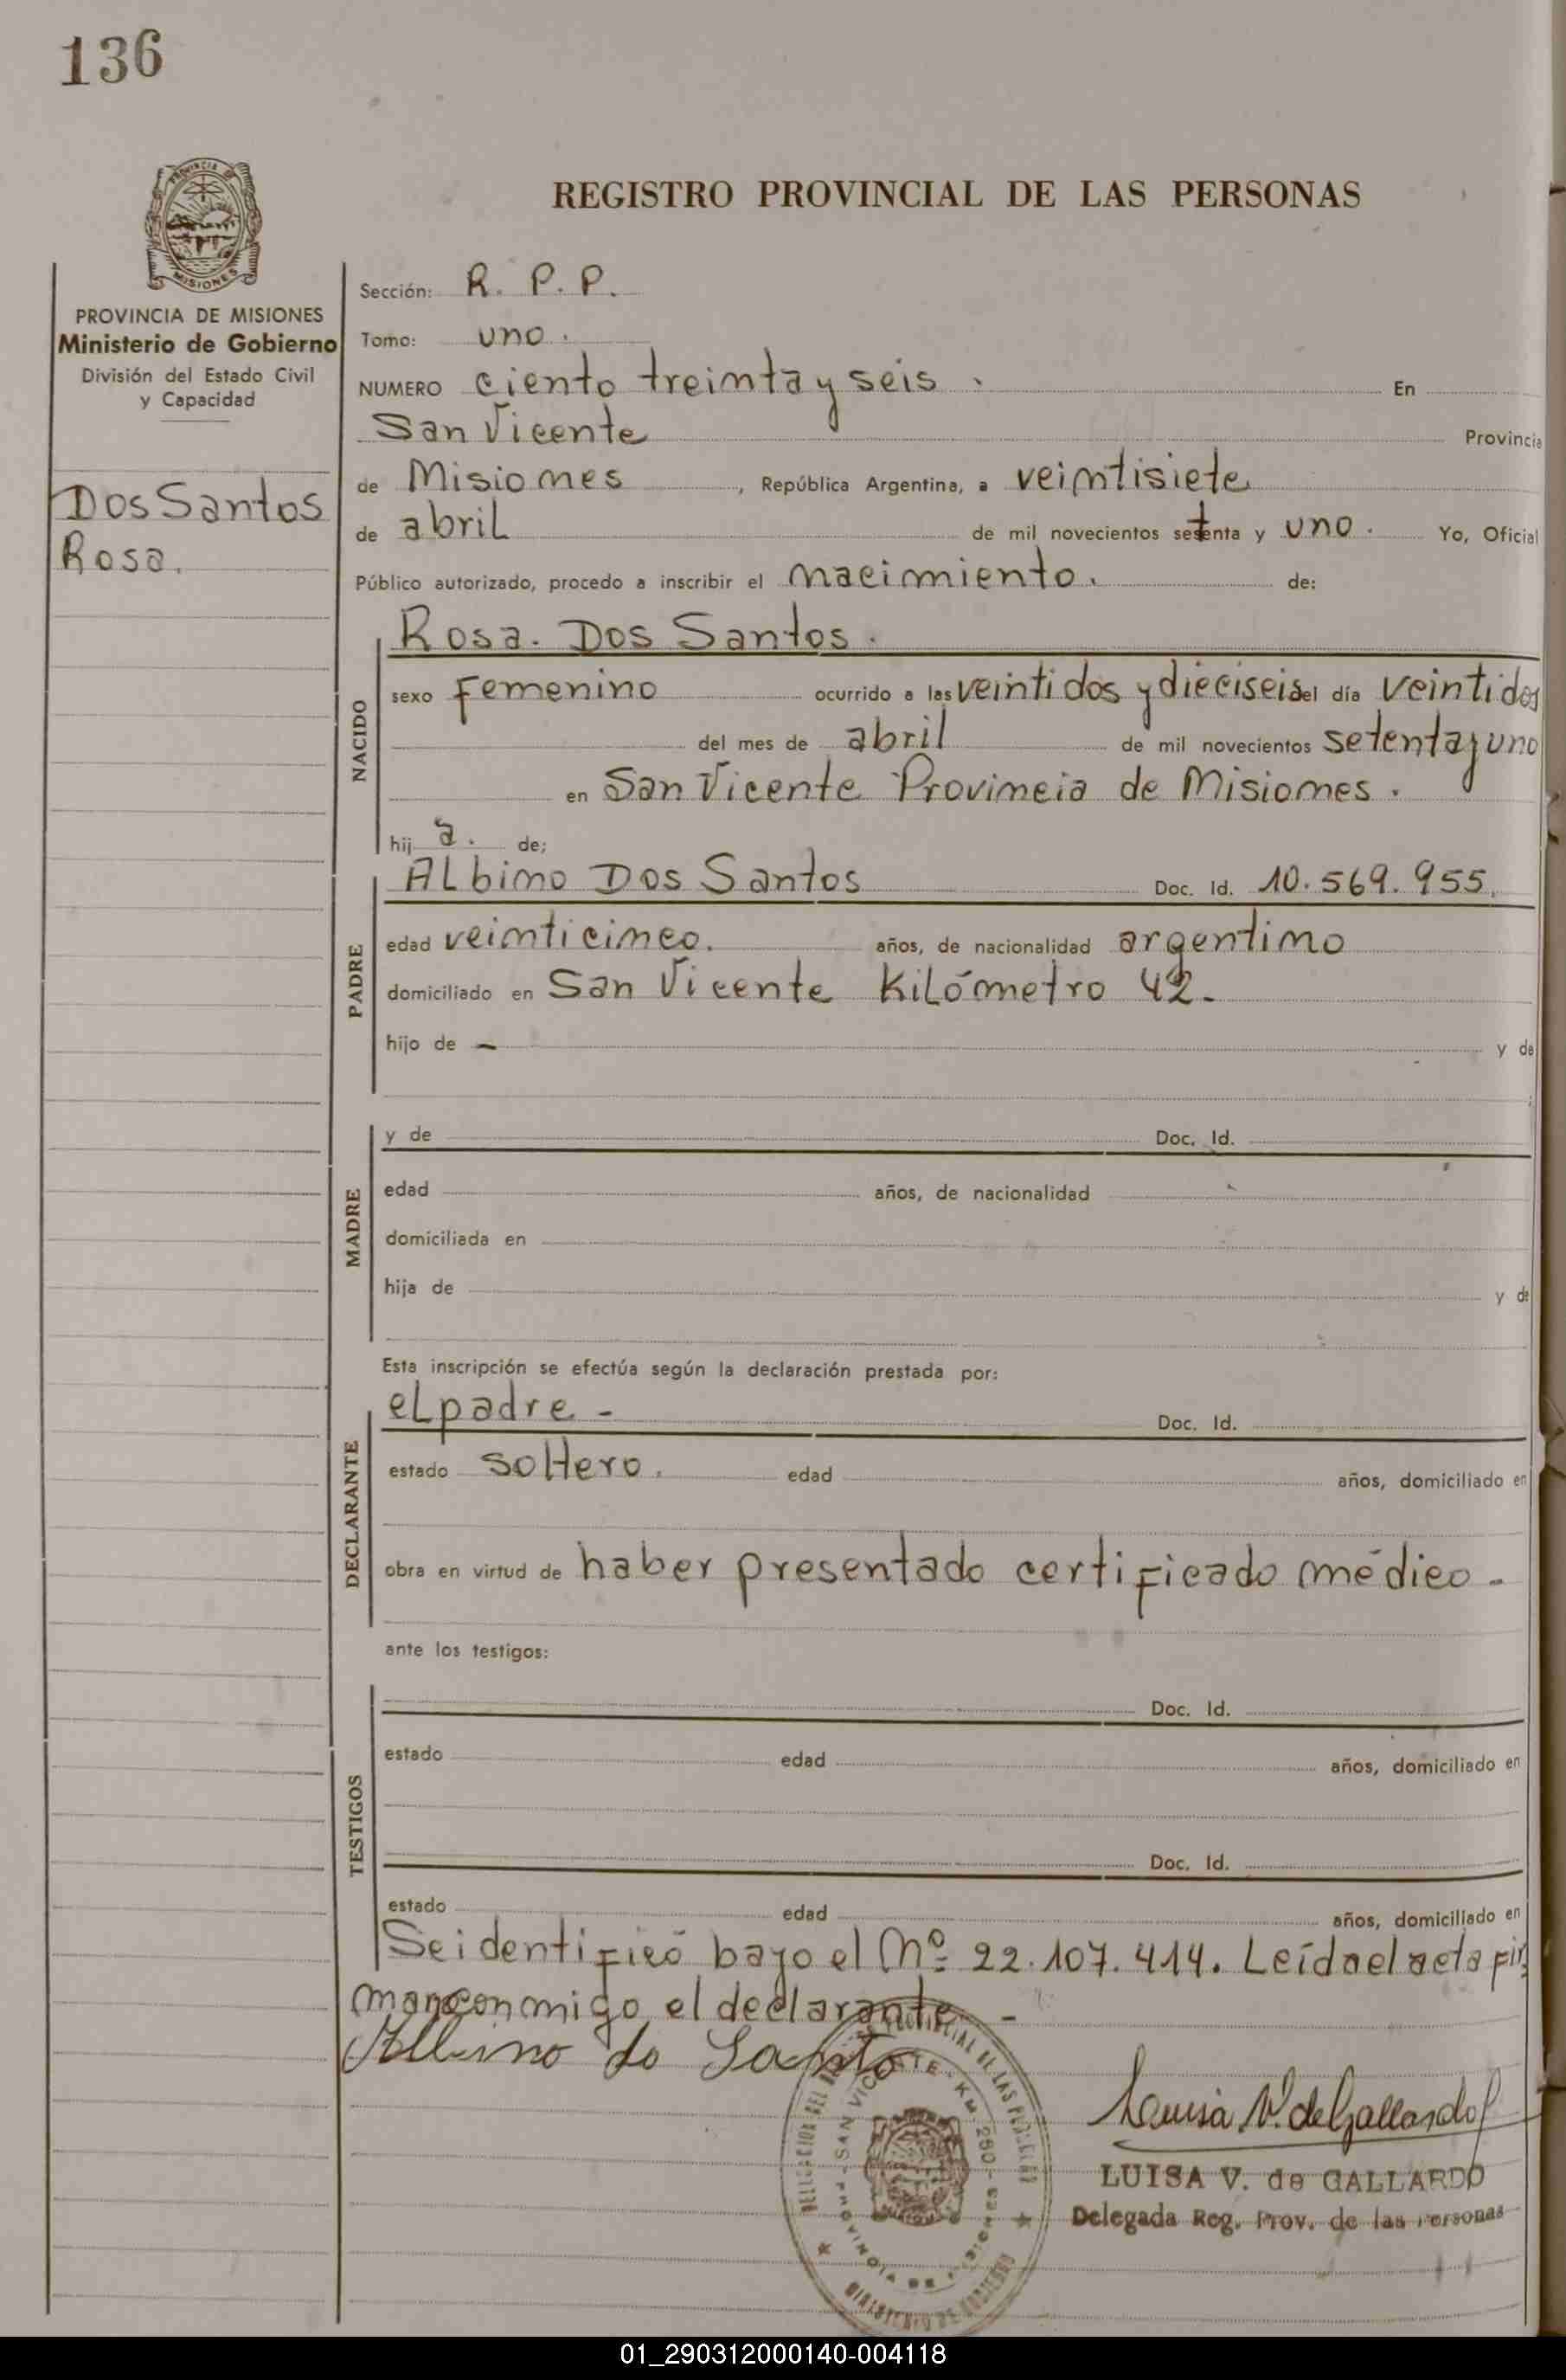 136
PROVINCIA
MISIONES
REGISTRO PROVINCIAL DE LAS PERSONAS
PROVINCIA DE MISIONES
Ministerio de Gobierno
División del Estado Civil
y Capacidad
Dos Santos
Rosa.
Sección: R. P. P.
Tomo: uno.
NUMERO ciento treinta y seis. En
San Vicente Provincia
de Misiones, República Argentina, a veintisiete
de abril de mil novecientos setenta y uno. Yo, Oficial
Público autorizado, procedo a inscribir el nacimiento. de:
NACIDO
Rosa. Dos Santos.
sexo Femenino ocurrido a las veintidos y dieciseis del día veintidos
del mes de abril de mil novecientos setenta y uno
en San Vicente Provincia de Misiones.
hija. de;
PADRE
Albino Dos Santos Doc. Id. 10.569.955.
edad veinticinco. años, de nacionalidad argentino
domiciliado en San Vicente Kilómetro 42.
hijo de - y de
MADRE
y de Doc. Id.
edad años, de nacionalidad
domiciliada en
hija de y de
Esta inscripción se efectúa según la declaración prestada por:
DECLARANTE
el padre - Doc. Id.
estado soltero. edad años, domiciliado en
obra en virtud de haber presentado certificado médico -
ante los testigos:
TESTIGOS
Doc. Id.
estado edad años, domiciliado en
Doc. Id.
estado edad años, domiciliado en
Se identificó bajo el Nº 22.107.414. Leída el acta fir
man conmigo el declarante -
Albino do Santo
SAN VICENTE - KM. 280 - PROVINCIA DE MISIONES
Luisa V. de Gallardo
LUISA V. de GALLARDO
Delegada Reg. Prov. de las Personas
01_290312000140-004118